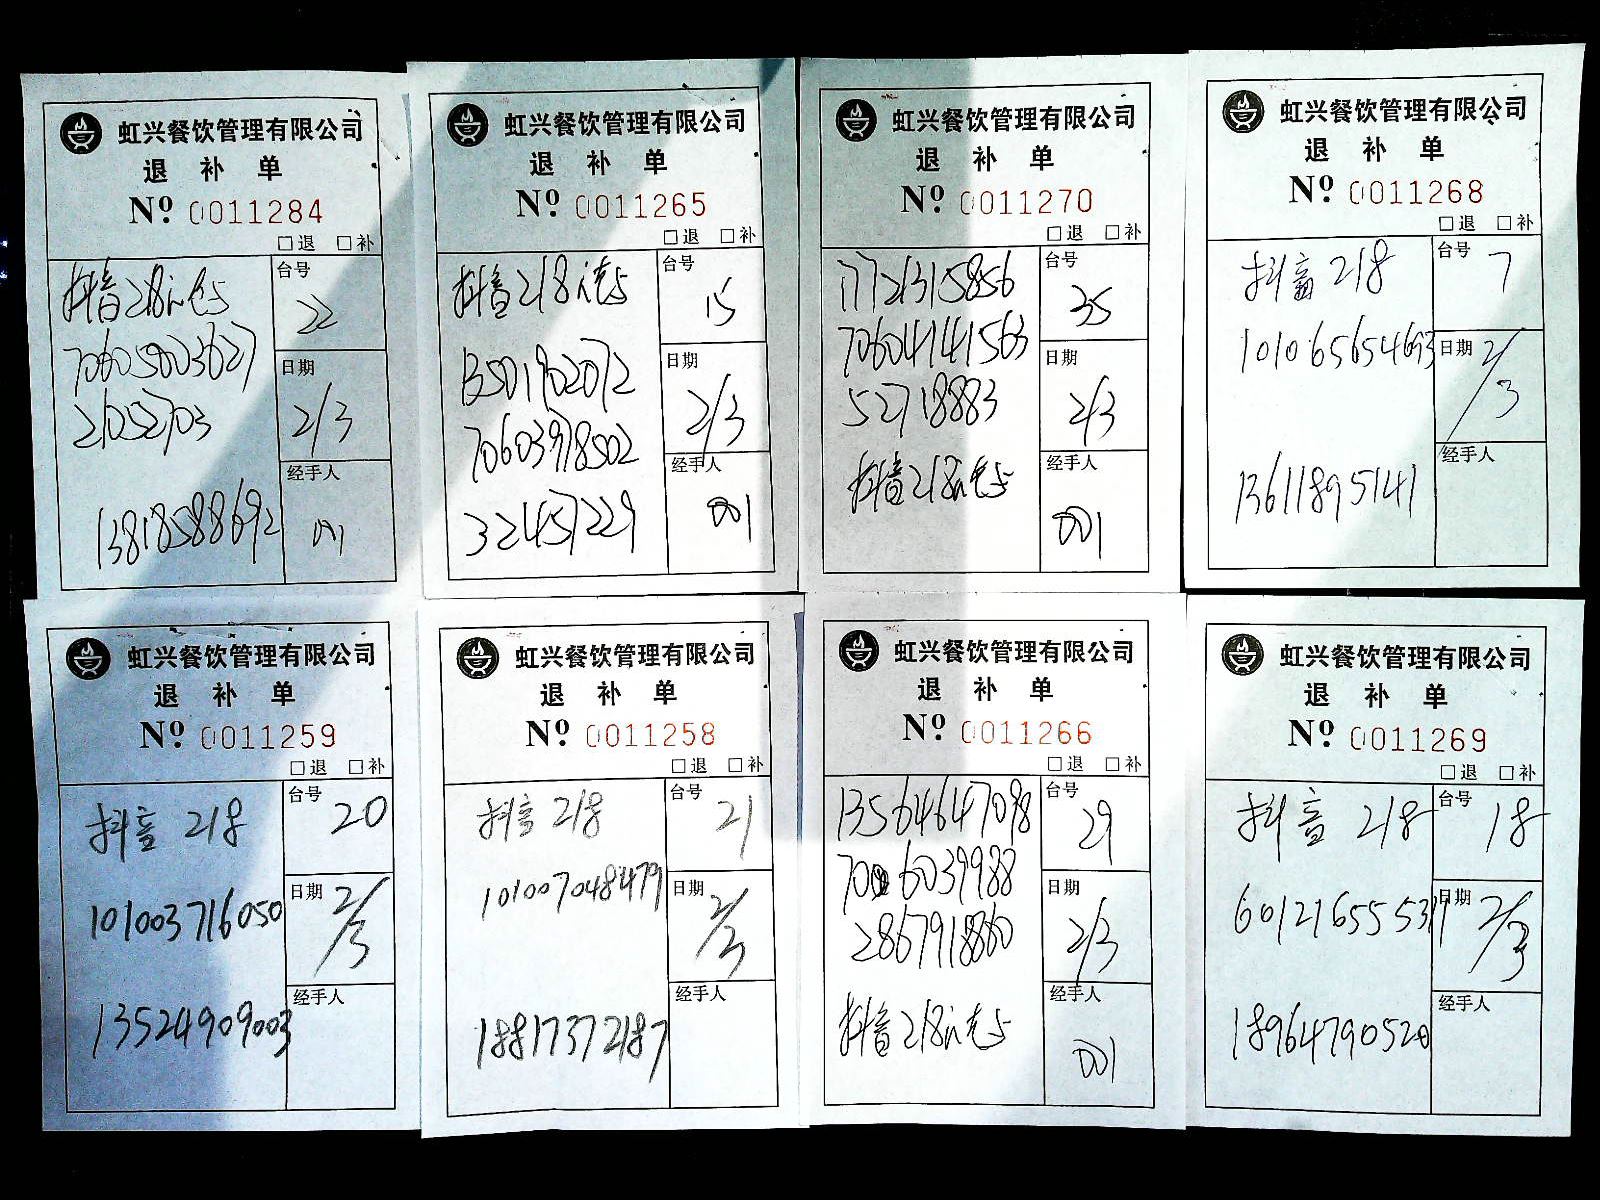 虹兴餐饮管理有限公司
退 补 单
Nº 0011284
□退 □补
抖音218
台号
22
70605803627
21052703
日期
2/3
13818588692
经手人
001
虹兴餐饮管理有限公司
退 补 单
Nº 0011265
□退 □补
抖音218
台号
15
13501902072
70603978502
日期
2/3
324457229
经手人
001
虹兴餐饮管理有限公司
退 补 单
Nº 0011270
□退 □补
17721315856
台号
35
706041441563
52718883
日期
2/3
抖音218
经手人
001
虹兴餐饮管理有限公司
退 补 单
Nº 0011268
□退 □补
抖音 218
台号
7
101065654693
日期
2/3
13611895141
经手人
虹兴餐饮管理有限公司
退 补 单
Nº 0011259
□退 □补
抖音 218
台号
20
101003716050
日期
2/3
13524909003
经手人
虹兴餐饮管理有限公司
退 补 单
Nº 0011258
□退 □补
抖音 218
台号
21
101007048479
日期
2/3
18817372187
经手人
虹兴餐饮管理有限公司
退 补 单
Nº 0011266
□退 □补
13564647098
台号
29
6039988
2867918860
日期
2/3
抖音218
经手人
001
虹兴餐饮管理有限公司
退 补 单
Nº 0011269
□退 □补
抖音 218
台号
18
日期
2/3
18964790520
经手人